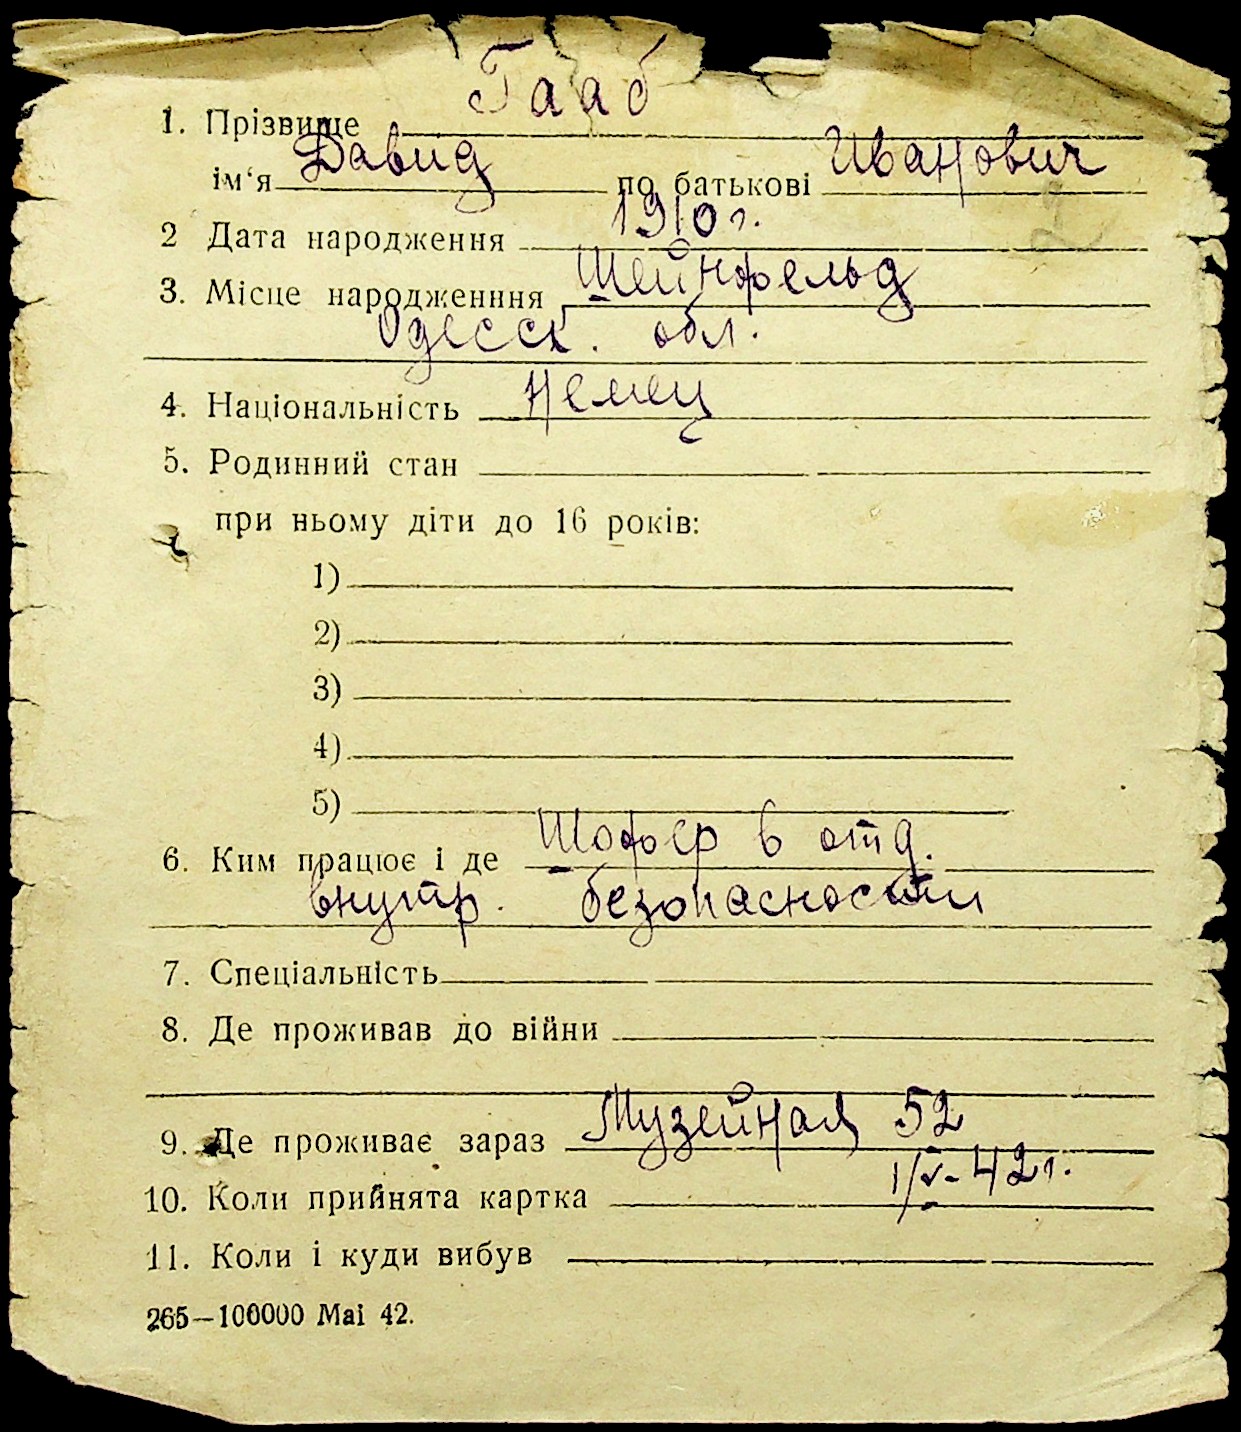 Гааб
1. Прізвище
Давид Иванович
ім‘я по батькові
1910 г.
2 Дата народження
Шейнфельд
3. Місце народженння
Одесск. обл.
4. Національність Немец
5. Родинний стан
при ньому діти до 16 років:
1)
2)
3)
4)
5)
6. Ким працює і де Шофер в отд.
внутр. безопасности
7. Спеціальність
8. Де проживав до війни
9. Де проживає зараз Музейная 52
10. Коли прийнята картка 1/V-42 г.
11. Коли і куди вибув
265—100000 Mai 42.